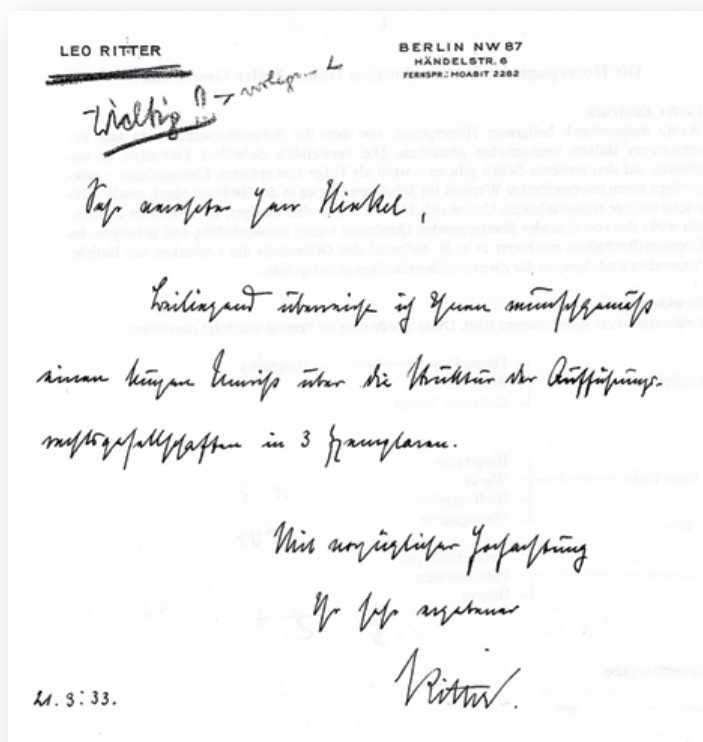 LEO RITTER
BERLIN NW 87
HÄNDELSTR. 6
FERNSPR.: MOABIT 2262
Wichtig!!
Sehr verehrter Herr Hinkel,
beiliegend überreiche ich Ihnen wunschgemäß
einen kurzen Umriß über die Struktur der Aufführungs-
rechtsgesellschaften in 3 Exemplaren.
Mit vorzüglicher Hochachtung
Ihr sehr ergebener
Ritter.
21.3.33.